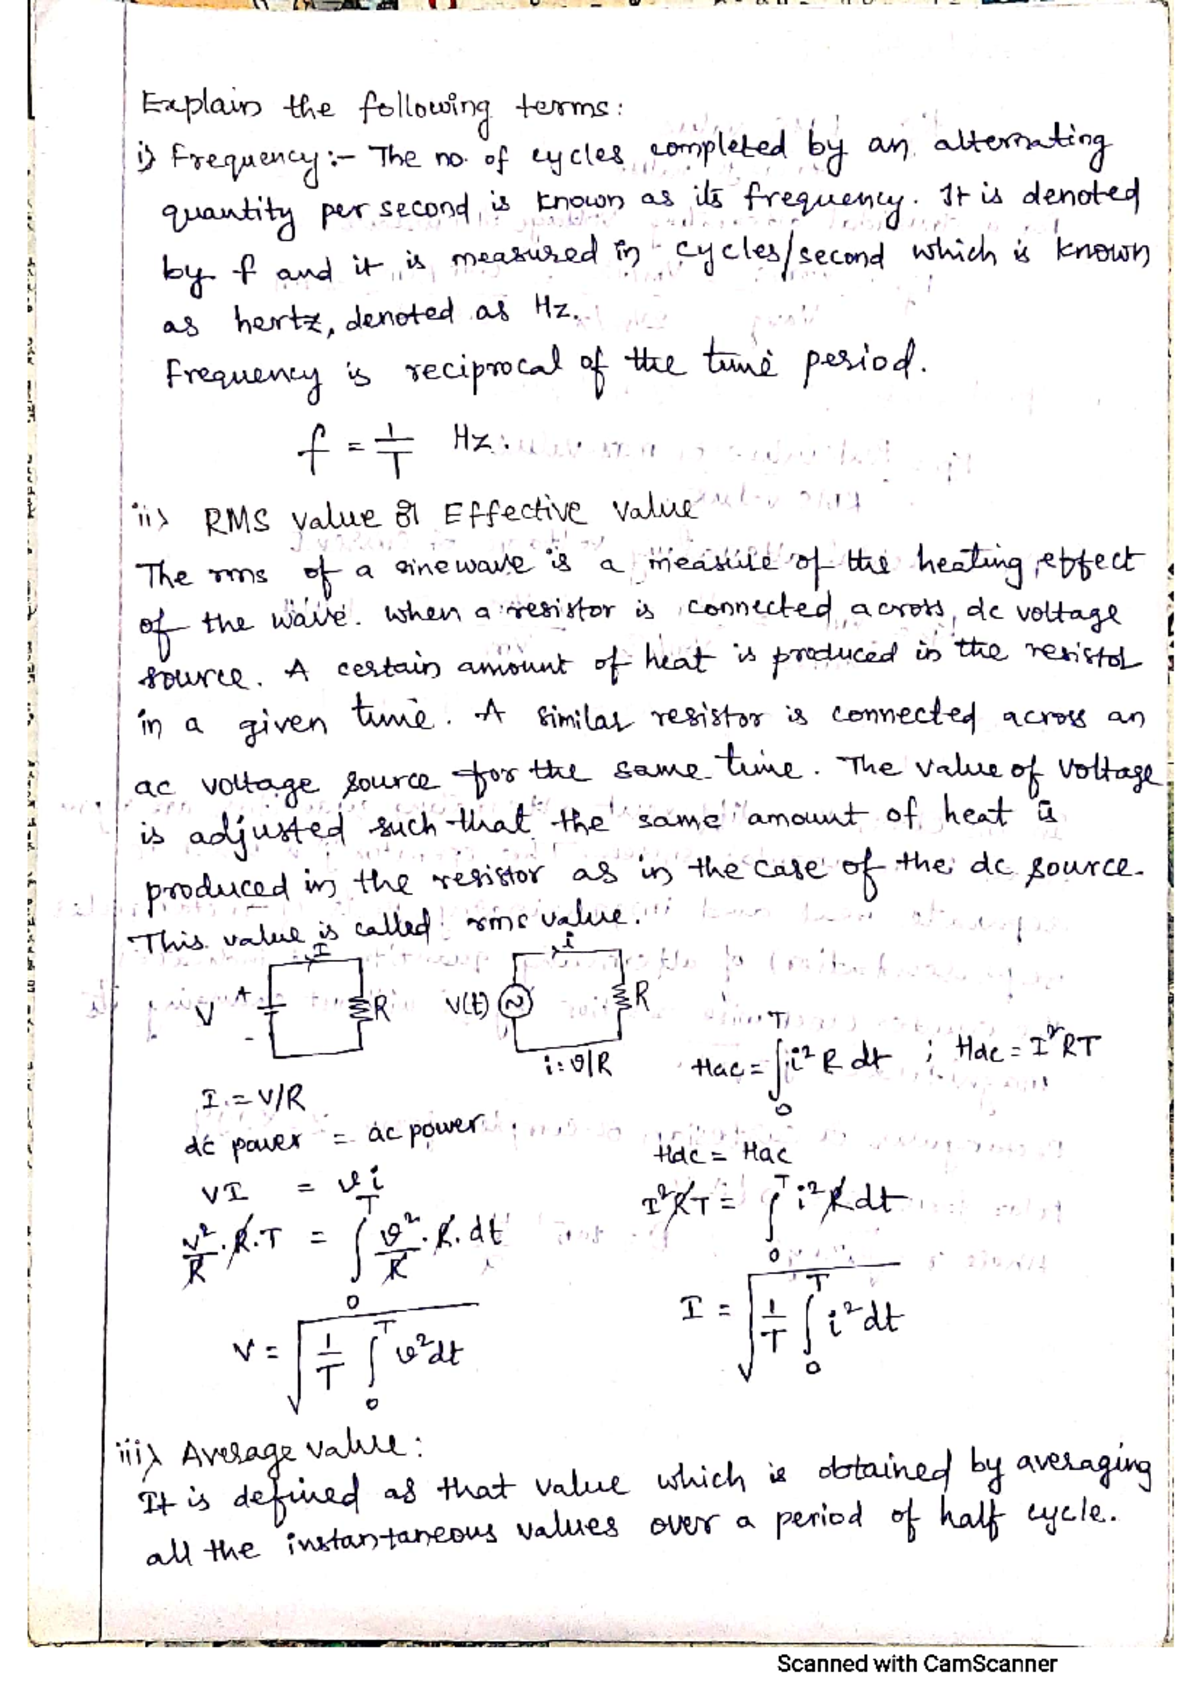 Explain the following terms:
i) Frequency :- The no. of cycles completed by an alternating
quantity per second is known as its frequency. It is denoted
by f and it is measured in cycles/second which is known
as hertz, denoted as Hz.
Frequency is reciprocal of the time period.
f = 1/T Hz.
ii) RMS value or Effective value
The rms of a sinewave is a measure of the heating effect
of the wave. When a resistor is connected across dc voltage
source. A certain amount of heat is produced in the resistor
in a given time. A similar resistor is connected across an
ac voltage source for the same time. The value of voltage
is adjusted such that the same amount of heat is
produced in the resistor as in the case of the dc source.
This value is called rms value.
I i
V + - R V(t) ~ R
i = v/R Hac = ∫₀ᵀ i² R dt ; Hdc = I²RT
I = V/R
dc power = ac power
Hdc = Hac
VI = vi
I²RT = ∫₀ᵀ i² R dt
V²/R · R · T = ∫₀ᵀ v²/R · R · dt
I = √(1/T ∫₀ᵀ i² dt)
V = √(1/T ∫₀ᵀ v² dt)
iii) Average value:
It is defined as that value which is obtained by averaging
all the instantaneous values over a period of half cycle.
Scanned with CamScanner